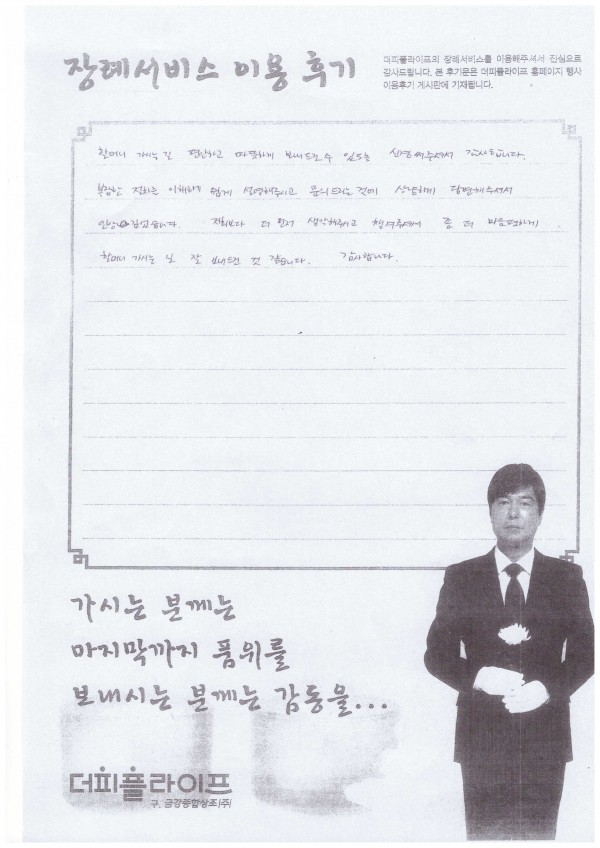 장례서비스 이용 후기
더피플라이프의 장례서비스를 이용해주셔서 진심으로
감사드립니다. 본 후기문은 더피플라이프 홈페이지 행사
이용후기 게시판에 기재됩니다.
할머니 가시는 길 편안하고 따뜻하게 보내드릴 수 있도록 신경써주셔서 감사합니다.
복잡한 절차는 이해하기 쉽게 설명해주시고 문의드리는 것에 상냥하게 답변해주셔서
저희보다 더 먼저 생각해주시고 챙겨주셔서 좀 더 마음편하게
할머니 가시는 길 잘 보내드린 것 같습니다. 감사합니다.
가시는 분께는
마지막까지 품위를
보내시는 분께는 감동을...
더피플라이프
구. 금강종합상조(주)